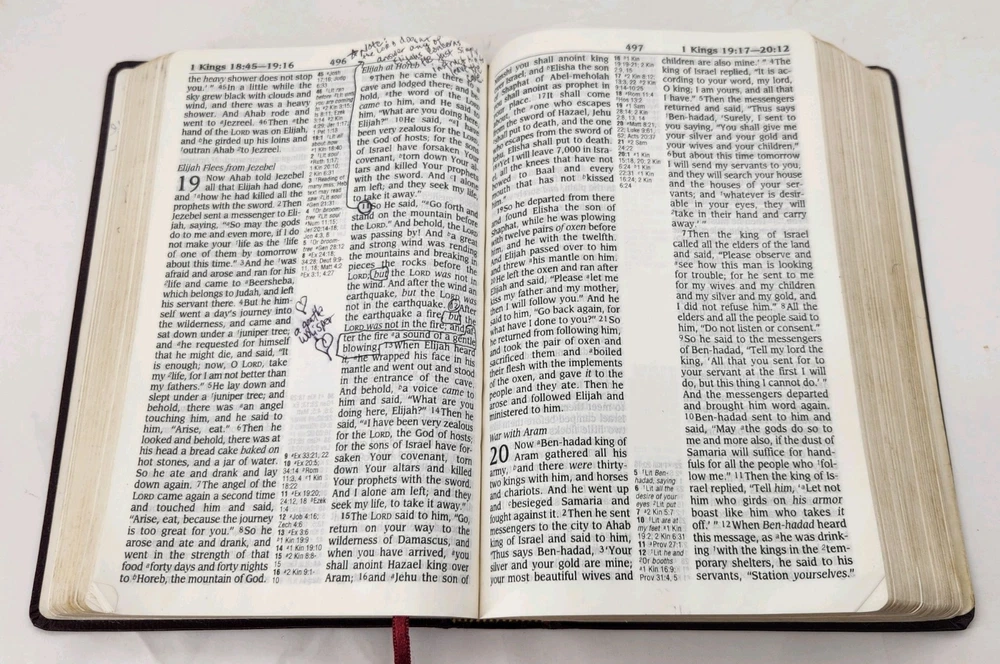 1 Kings 18:45–19:16
496
the heavy shower does not stop
you.’ ” 45In a little while the
sky grew black with clouds and
wind, and there was a heavy
shower. And Ahab rode and
went to Jezreel. 46Then the
hand of the LORD was on Elijah,
and he girded up his loins and
outran Ahab to Jezreel.
Elijah Flees from Jezebel
19 Now Ahab told Jezebel
all that Elijah had done,
and how he had killed all the
prophets with the sword. 2Then
Jezebel sent a messenger to Eli-
jah, saying, “So may the gods
do to me and even more, if I do
not make your life as the life
of one of them by tomorrow
about this time.” 3And he was
afraid and arose and ran for his
life and came to Beersheba,
which belongs to Judah, and left
his servant there. 4But he him-
self went a day’s journey into
the wilderness, and came and
sat down under a juniper tree;
and he requested for himself
that he might die, and said, “It
is enough; now, O LORD, take
my life, for I am not better than
my fathers.” 5He lay down and
slept under a juniper tree; and
behold, there was an angel
touching him, and he said to
him, “Arise, eat.” 6Then he
looked and behold, there was at
his head a bread cake baked on
hot stones, and a jar of water.
So he ate and drank and lay
down again. 7The angel of the
LORD came again a second time
and touched him and said,
“Arise, eat, because the journey
is too great for you.” 8So he
arose and ate and drank, and
went in the strength of that
food forty days and forty nights
to Horeb, the mountain of God.
a gentle
whisper
9 Ex 33:21, 22
10 Ex 20:5;
34:14
Rom
11:3, 4 1 Kin
18:22
11 Ex 19:20;
24:12, 18 Ezek
1:4
12 Job 4:16;
Zech 4:6
13 Ex 3:6
1 Kin 19:9
14 1 Kin 19:10
15 2 Kin 8:8-
15
16 2 Kin 9:1-
10
Note:
Elijah at Horeb
9Then he came there to a
cave and lodged there; and be-
hold, the word of the LORD
came to him, and He said to
him, “What are you doing here,
Elijah?” 10He said, “I have
been very zealous for the LORD,
the God of hosts; for the sons
of Israel have forsaken Your
covenant, torn down Your al-
tars and killed Your prophets
with the sword. And I alone
am left; and they seek my life,
to take it away.”
11So He said, “Go forth and
stand on the mountain before
the LORD.” And behold, the LORD
was passing by! And a great
and strong wind was rending
the mountains and breaking in
pieces the rocks before the
LORD; but the LORD was not in
the wind. And after the wind an
earthquake, but the LORD was
not in the earthquake. 12After
the earthquake a fire, but the
LORD was not in the fire; and af-
ter the fire a sound of a gentle
blowing. 13When Elijah heard
it, he wrapped his face in his
mantle and went out and stood
in the entrance of the cave.
And behold, a voice came to
him and said, “What are you
doing here, Elijah?” 14Then he
said, “I have been very zealous
for the LORD, the God of hosts;
for the sons of Israel have for-
saken Your covenant, torn
down Your altars and killed
Your prophets with the sword.
And I alone am left; and they
seek my life, to take it away.”
15The LORD said to him, “Go,
return on your way to the
wilderness of Damascus, and
when you have arrived, you
shall anoint Hazael king over
Aram; 16and Jehu the son of
497
1 Kings 19:17–20:12
you shall anoint king
Israel; and Elisha the son
Shaphat of Abel-meholah
shall anoint as prophet in
place. 17It shall come
the one who escapes
from the sword of Hazael, Jehu
put to death, and the one
who escapes from the sword of
Elisha shall put to death.
Yet I will leave 7,000 in Isra-
all the knees that have not
bowed to Baal and every
mouth that has not kissed
him.”
19So he departed from there
and found Elisha the son of
Shaphat, while he was plowing
with twelve pairs of oxen before
him, and he with the twelfth.
And Elijah passed over to him
and threw his mantle on him.
He left the oxen and ran after
Elijah and said, “Please let me
kiss my father and my mother,
then I will follow you.” And he
said to him, “Go back again, for
what have I done to you?” 21So
he returned from following him,
and took the pair of oxen and
sacrificed them and boiled
their flesh with the implements
of the oxen, and gave it to the
people and they ate. Then he
arose and followed Elijah and
ministered to him.
War with Aram
20 Now Ben-hadad king of
Aram gathered all his
army, and there were thirty-
two kings with him, and horses
and chariots. And he went up
and besieged Samaria and
fought against it. 2Then he sent
messengers to the city to Ahab
king of Israel and said to him,
“Thus says Ben-hadad, 3‘Your
silver and your gold are mine;
your most beautiful wives and
5 Lit Ben-
hadad, saying
6 Lit all the
desire of your
eyes 2 Lit put
7 2 Kin 5:7
10 Lit are at
my feet 1 Kin
19:2; 2 Kin 6:31
11 Prov 27:1
12 Lit he and
Or booths
1 Kin 16:9;
Prov 31:4, 5
children are also mine.’ ” 4The
king of Israel replied, “It is ac-
cording to your word, my lord,
O king; I am yours, and all that
I have.” 5Then the messengers
returned and said, “Thus says
Ben-hadad, ‘Surely, I sent to
you saying, “You shall give me
your silver and your gold and
your wives and your children,”
6but about this time tomorrow
I will send my servants to you,
and they will search your house
and the houses of your ser-
vants; and whatever is desir-
able in your eyes, they will
take in their hand and carry
away.’ ”
7Then the king of Israel
called all the elders of the land
and said, “Please observe and
see how this man is looking
for trouble; for he sent to me
for my wives and my children
and my silver and my gold, and
I did not refuse him.” 8All the
elders and all the people said to
him, “Do not listen or consent.”
9So he said to the messengers
of Ben-hadad, “Tell my lord the
king, ‘All that you sent for to
your servant at the first I will
do, but this thing I cannot do.’ ”
And the messengers departed
and brought him word again.
10Ben-hadad sent to him and
said, “May the gods do so to
me and more also, if the dust of
Samaria will suffice for hand-
fuls for all the people who fol-
low me.” 11Then the king of Is-
rael replied, “Tell him, ‘Let not
him who girds on his armor
boast like him who takes it
off.’ ” 12When Ben-hadad heard
this message, as he was drink-
ing with the kings in the tem-
porary shelters, he said to his
servants, “Station yourselves.”